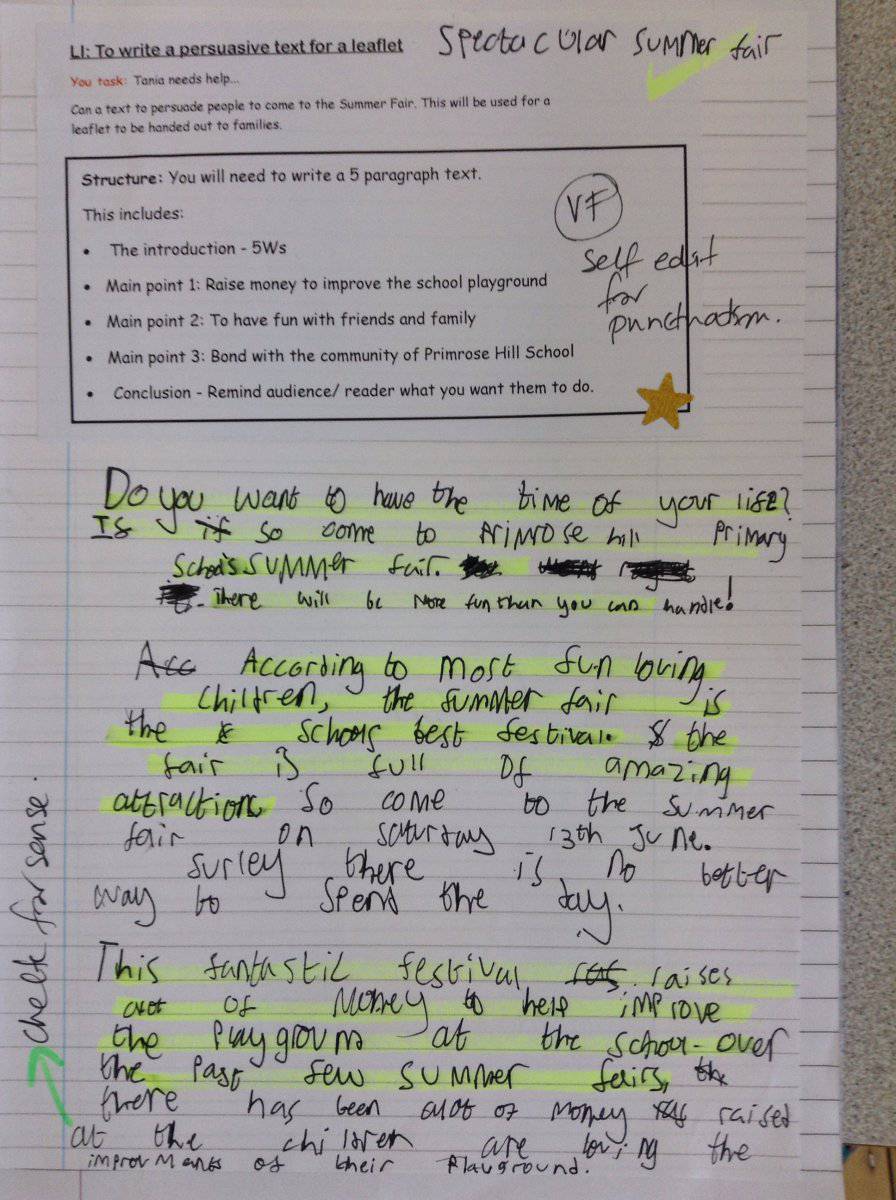 LI: To write a persuasive text for a leaflet
Spectacular summer fair
You task: Tania needs help...
Can a text to persuade people to come to the Summer Fair. This will be used for a
leaflet to be handed out to families.
Structure: You will need to write a 5 paragraph text.
This includes:
• The introduction - 5Ws
• Main point 1: Raise money to improve the school playground
• Main point 2: To have fun with friends and family
• Main point 3: Bond with the community of Primrose Hill School
• Conclusion - Remind audience/ reader what you want them to do.
VF
self edit
for
punctuation.
Do you want to have the time of your life?
If so come to primrose hill primary
school's summer fair.
There will be more fun than you can handle!
According to most fun loving
children, the summer fair is
the schools best festival. the
fair is full of amazing
attractions, so come to the summer
fair on saturday 13th june.
surley there is no better
way to spend the day.
check for sense.
This fantastic festival raises
alot of money to help improve
the playground at the school. over
the past few summer fairs,
there has been alot of money raised
at the children are loving the
improvments of their playground.